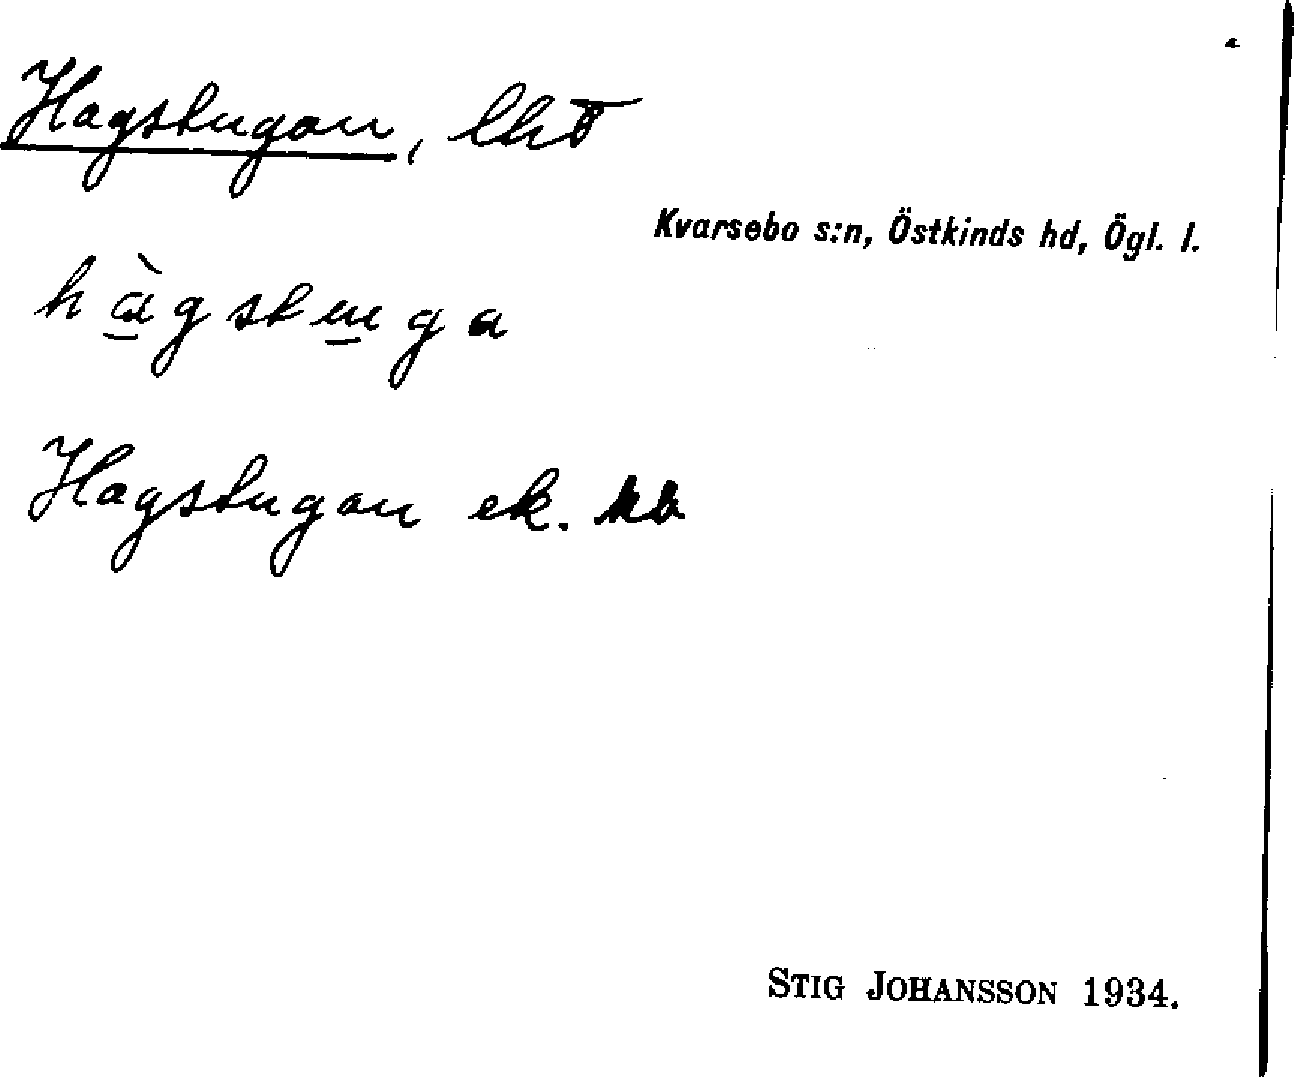 Hagstugan, lht
Kvarsebo s:n, Östkinds hd, Ögl. l.
hàgstuga
Hagstugan ek. kb
STIG JOHANSSON 1934.